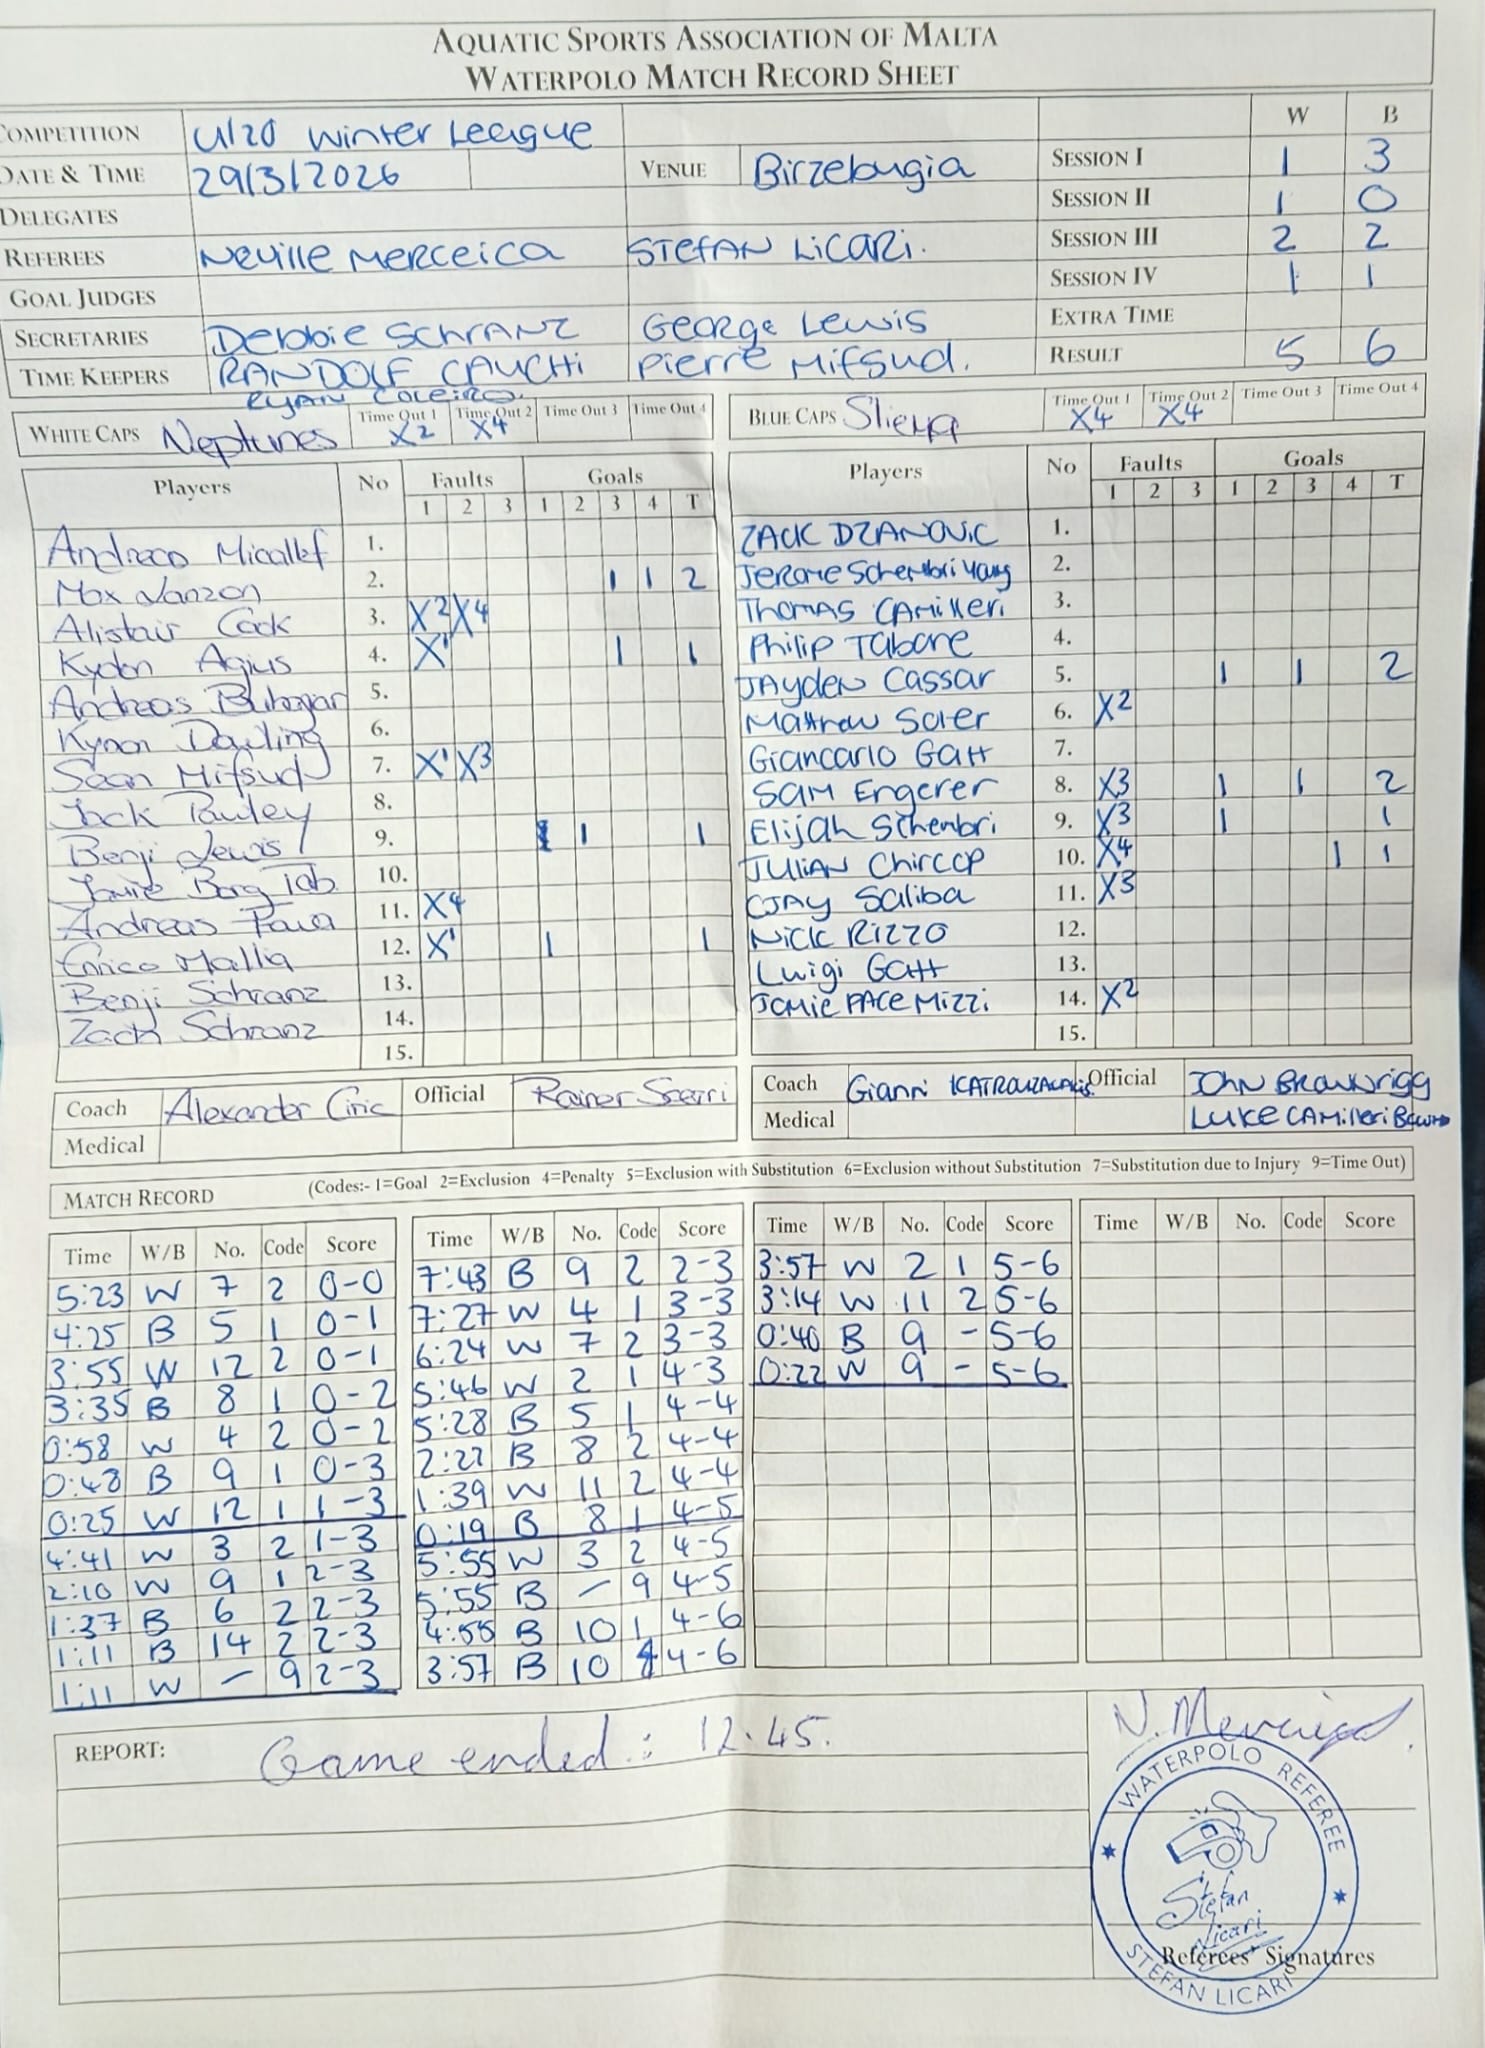 AQUATIC SPORTS ASSOCIATION OF MALTA
WATERPOLO MATCH RECORD SHEET
COMPETITION U/20 Winter League W B
DATE & TIME 29/3/2026 VENUE Birzebugia SESSION I 1 3
DELEGATES SESSION II 1 0
REFEREES Neville Merceica STEFAN LICARI. SESSION III 2 2
GOAL JUDGES SESSION IV 1 1
SECRETARIES Debbie SchrANZ George Lewis EXTRA TIME
TIME KEEPERS RANDOLF CAUCHI Pierre Mifsud. RESULT 5 6
Ryan Coleiro
WHITE CAPS Neptunes Time Out 1 X2 Time Out 2 X4 Time Out 3 Time Out 4
BLUE CAPS Sliema Time Out 1 X4 Time Out 2 X4 Time Out 3 Time Out 4
Players No Faults Goals
1 2 3 1 2 3 4 T
Andreco Micallef 1.
Max Janzon 2. 1 1 2
Alistair Cock 3. X2 X4
Kydon Agius 4. X1 1 1
Andreas 5.
Kynon Dowling 6.
Sean Mifsud 7. X1 X3
Jack 8.
Benji Lewis 9. 1 1
Jamie Borg Tab. 10.
Andreas 11. X4
Enrico Mallia 12. X1 1 1
Benji Schranz 13.
Zach Schranz 14.
15.
Players No Faults Goals
1 2 3 1 2 3 4 T
ZACK DZANOVIC 1.
Jerome Schembri Young 2.
Thomas CAMilleri 3.
Philip Tabone 4.
JAyden Cassar 5. 1 1 2
Matthew Soler 6. X2
Giancarlo Gatt 7.
SAM Engerer 8. X3 1 1 2
Elijah Schembri 9. X3 1 1
JULIAN Chircop 10. X4 1 1
CJAY Saliba 11. X3
NICK RIZZO 12.
Luigi Gatt 13.
JAMIE PACE Mizzi 14. X2
15.
Coach Alexander Ciric Official Rainer Scerri
Medical
Coach Gianni Official John Brownrigg
Medical LUKE CAMilleri
MATCH RECORD (Codes:- 1=Goal 2=Exclusion 4=Penalty 5=Exclusion with Substitution 6=Exclusion without Substitution 7=Substitution due to Injury 9=Time Out)
Time W/B No. Code Score
5:23 W 7 2 0-0
4:25 B 5 1 0-1
3:55 W 12 2 0-1
3:35 B 8 1 0-2
0:58 W 4 2 0-2
0:48 B 9 1 0-3
0:25 W 12 1 1-3
4:41 W 3 2 1-3
2:10 W 9 1 2-3
1:37 B 6 2 2-3
1:11 B 14 2 2-3
1:11 W - 9 2-3
Time W/B No. Code Score
7:43 B 9 2 2-3
7:27 W 4 1 3-3
6:24 W 7 2 3-3
5:46 W 2 1 4-3
5:28 B 5 1 4-4
2:22 B 8 2 4-4
1:39 W 11 2 4-4
0:19 B 8 1 4-5
5:55 W 3 2 4-5
5:55 B - 9 4-5
4:55 B 10 1 4-6
3:57 B 10 4 4-6
Time W/B No. Code Score
3:57 W 2 1 5-6
3:14 W 11 2 5-6
0:40 B 9 - 5-6
0:22 W 9 - 5-6
Time W/B No. Code Score
REPORT: Game ended: 12.45.
N. Merceica
WATERPOLO REFEREE
Stefan
Licari
Referees' Signatures
STEFAN LICARI